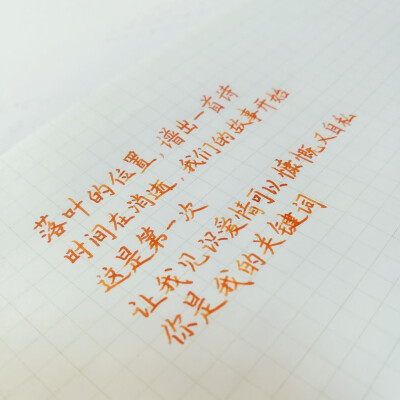 落叶的位置，谱出一首诗
时间在消逝，我们的故事开始
这是第一次
让我见识爱情可以慷慨又自私
你是我的关键词